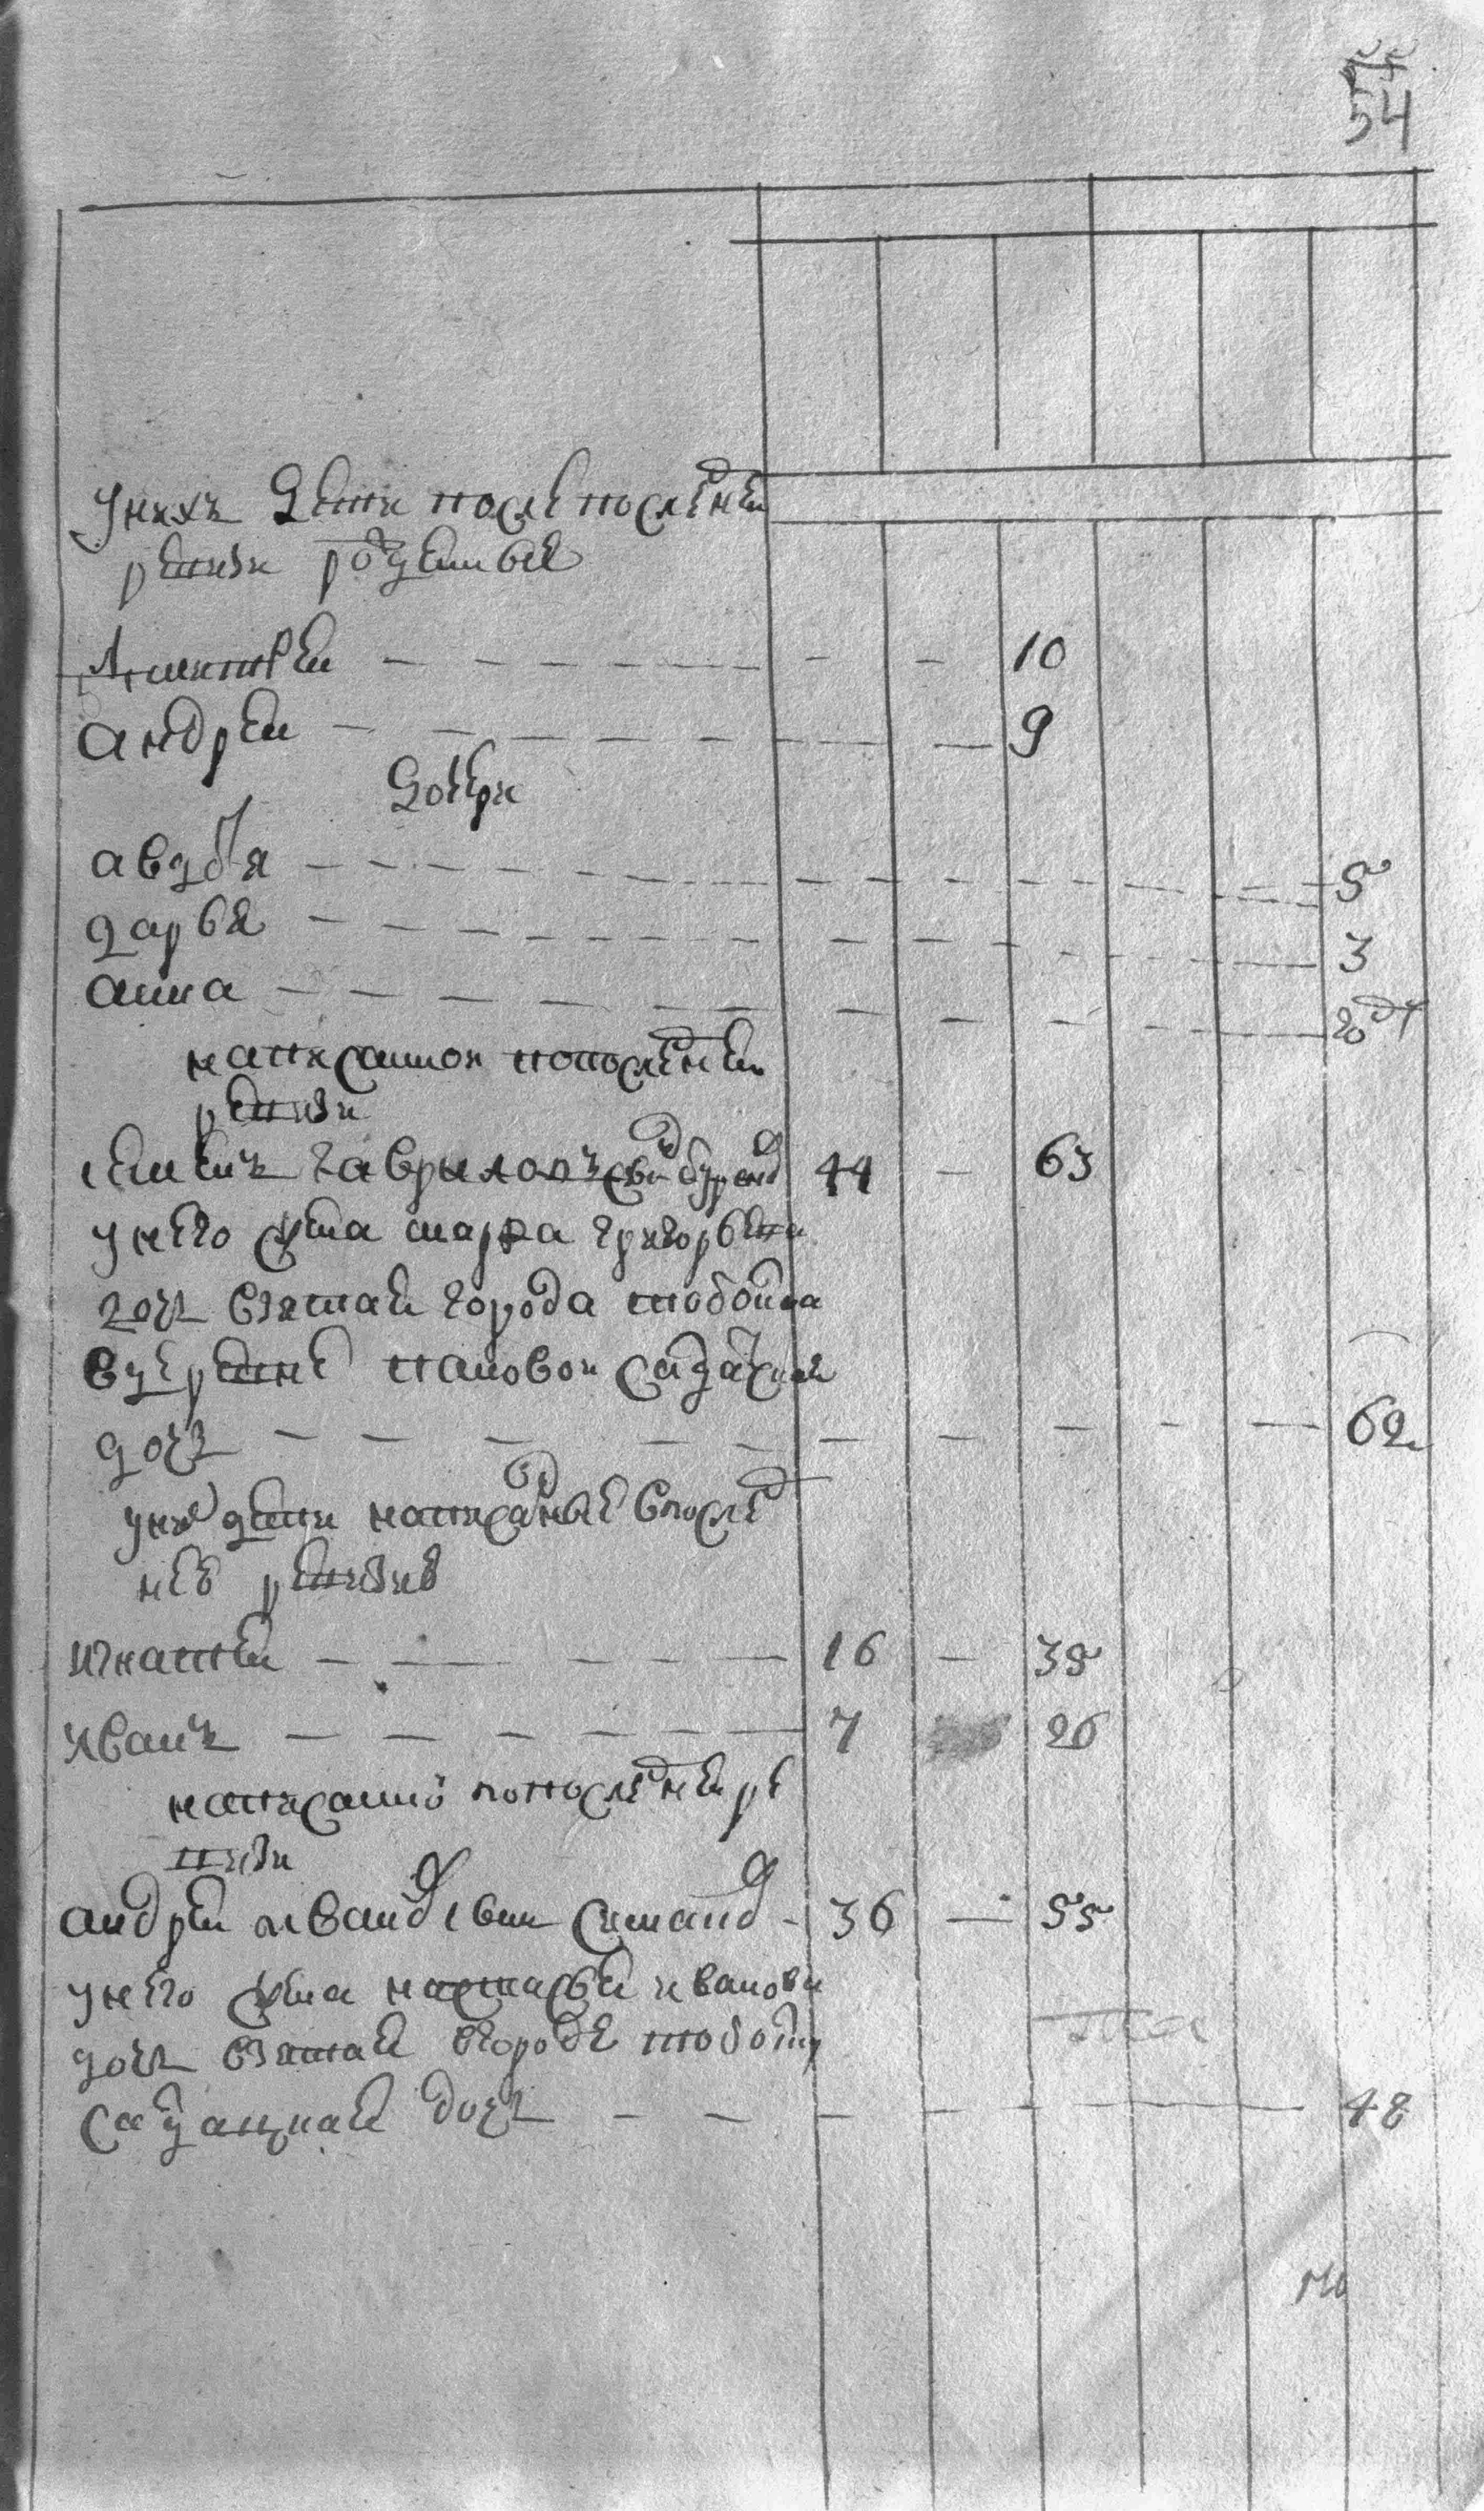 54
у нихъ дети после последней
ревизи рожденные
10
андрей 9
дочери
авдотя 5
дарья 3
анна год 1
написанной по последней
ревизи
семенъ гавриловъ сынъ 44 63
у него жена марфа григорьева
дочь взятая города тобольска
в деревне пановой
дочь 62
у них дети написанные в послед
ней ревизии
игнатей 16 35
иванъ 7 26
написанно по последней ре
визи
андрей иванов сынъ 36 55
у него жена настасья иванова
дочь взятая в городе тобольску
дочь 48